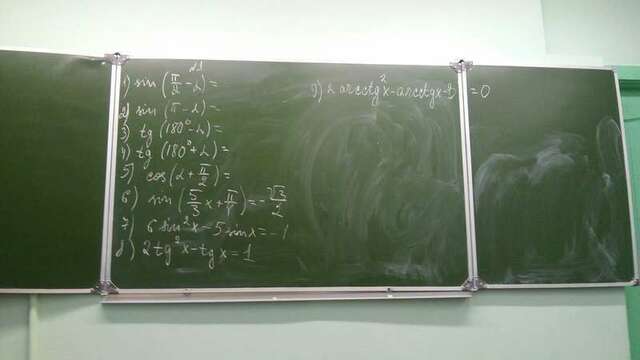 21
1) sin (π/2 - α) =
2) sin (π - α) =
3) tg (180° - α) =
4) tg (180° + α) =
5) cos (α + π/2) =
6) sin (5/3 x + π/ ) = - √3/2
7) 6 sin²x - 5 sin x = - 1
8) 2 tg²x - tg x = 1
9) 2 arcctg²x - arcctg x - 1 = 0